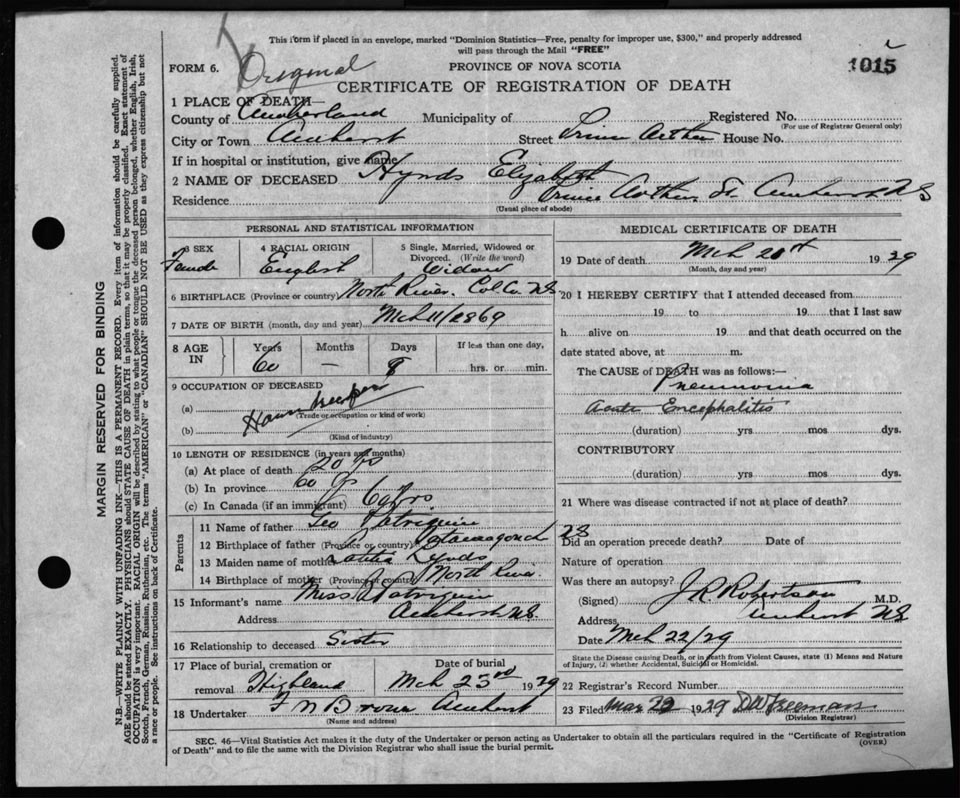 This form if placed in an envelope, marked "Dominion Statistics—Free, penalty for improper use, $300," and properly addressed
will pass through the Mail "FREE"
FORM 6. Original
PROVINCE OF NOVA SCOTIA
1015
CERTIFICATE OF REGISTRATION OF DEATH
1 PLACE OF DEATH—
County of Cumberland Municipality of Registered No.
(For use of Registrar General only)
City or Town Amherst Street Prince Arthur House No.
If in hospital or institution, give name
2 NAME OF DECEASED Hynds Elizabeth
Residence Prince Arthur St Amherst NS
(Usual place of abode)
PERSONAL AND STATISTICAL INFORMATION
3 SEX 4 RACIAL ORIGIN 5 Single, Married, Widowed or
Divorced. (Write the word)
Female English Widow
6 BIRTHPLACE (Province or country) North River. Col Co. NS
7 DATE OF BIRTH (month, day and year) Mch 11/1869
8 AGE IN Years Months Days If less than one day,
60 — 9 hrs. or min.
9 OCCUPATION OF DECEASED
(a) Housekeeper
(Trade or occupation or kind of work)
(b)
(Kind of industry)
10 LENGTH OF RESIDENCE (in years and months)
(a) At place of death 20 yrs
(b) In province 60 yrs
(c) In Canada (if an immigrant) 60 yrs
Parents
11 Name of father Geo Patriquin
12 Birthplace of father (Province or country) Tatamagouch NS
13 Maiden name of mother Lynds
14 Birthplace of mother (Province or country) North River
15 Informant's name Miss Patriquin
Address Amherst NS
16 Relationship to deceased Sister
17 Place of burial, cremation or Date of burial
removal Highland Mch 23rd 1929
18 Undertaker F N Brown Amherst
(Name and address)
MEDICAL CERTIFICATE OF DEATH
19 Date of death Mch 20th 1929
(Month, day and year)
20 I HEREBY CERTIFY that I attended deceased from
19 to 19 that I last saw
h alive on 19 and that death occurred on the
date stated above, at m.
The CAUSE of DEATH was as follows:—
Pneumonia
Acute Encephalitis
(duration) yrs mos dys.
CONTRIBUTORY
(duration) yrs. mos dys.
21 Where was disease contracted if not at place of death?
Did an operation precede death? Date of
Nature of operation
Was there an autopsy?
(Signed) J.R. Robertson M.D.
Address Amherst NS
Date Mch 22/29
State the Disease causing Death, or in death from Violent Causes, state (1) Means and Nature
of Injury, (2) whether Accidental, Suicidal or Homicidal.
22 Registrar's Record Number
23 Filed Mar 22 1929 DW Freeman
(Division Registrar)
SEC. 46—Vital Statistics Act makes it the duty of the Undertaker or person acting as Undertaker to obtain all the particulars required in the "Certificate of Registration
of Death" and to file the same with the Division Registrar who shall issue the burial permit.
(OVER)
MARGIN RESERVED FOR BINDING
N.B.—WRITE PLAINLY WITH UNFADING INK—THIS IS A PERMANENT RECORD. Every item of information should be carefully supplied.
AGE should be stated EXACTLY. PHYSICIANS should STATE CAUSE OF DEATH in plain terms, so that it may be properly classified. Exact statement of
OCCUPATION is very important. RACIAL ORIGIN will be described by stating to what people or tongue the deceased person belonged, whether English, Irish,
Scotch, French, German, Russian, Ruthenian, etc. The terms "AMERICAN" or "CANADIAN" SHOULD NOT BE USED as they express citizenship but not
a race or people. See instructions on back of Certificate.